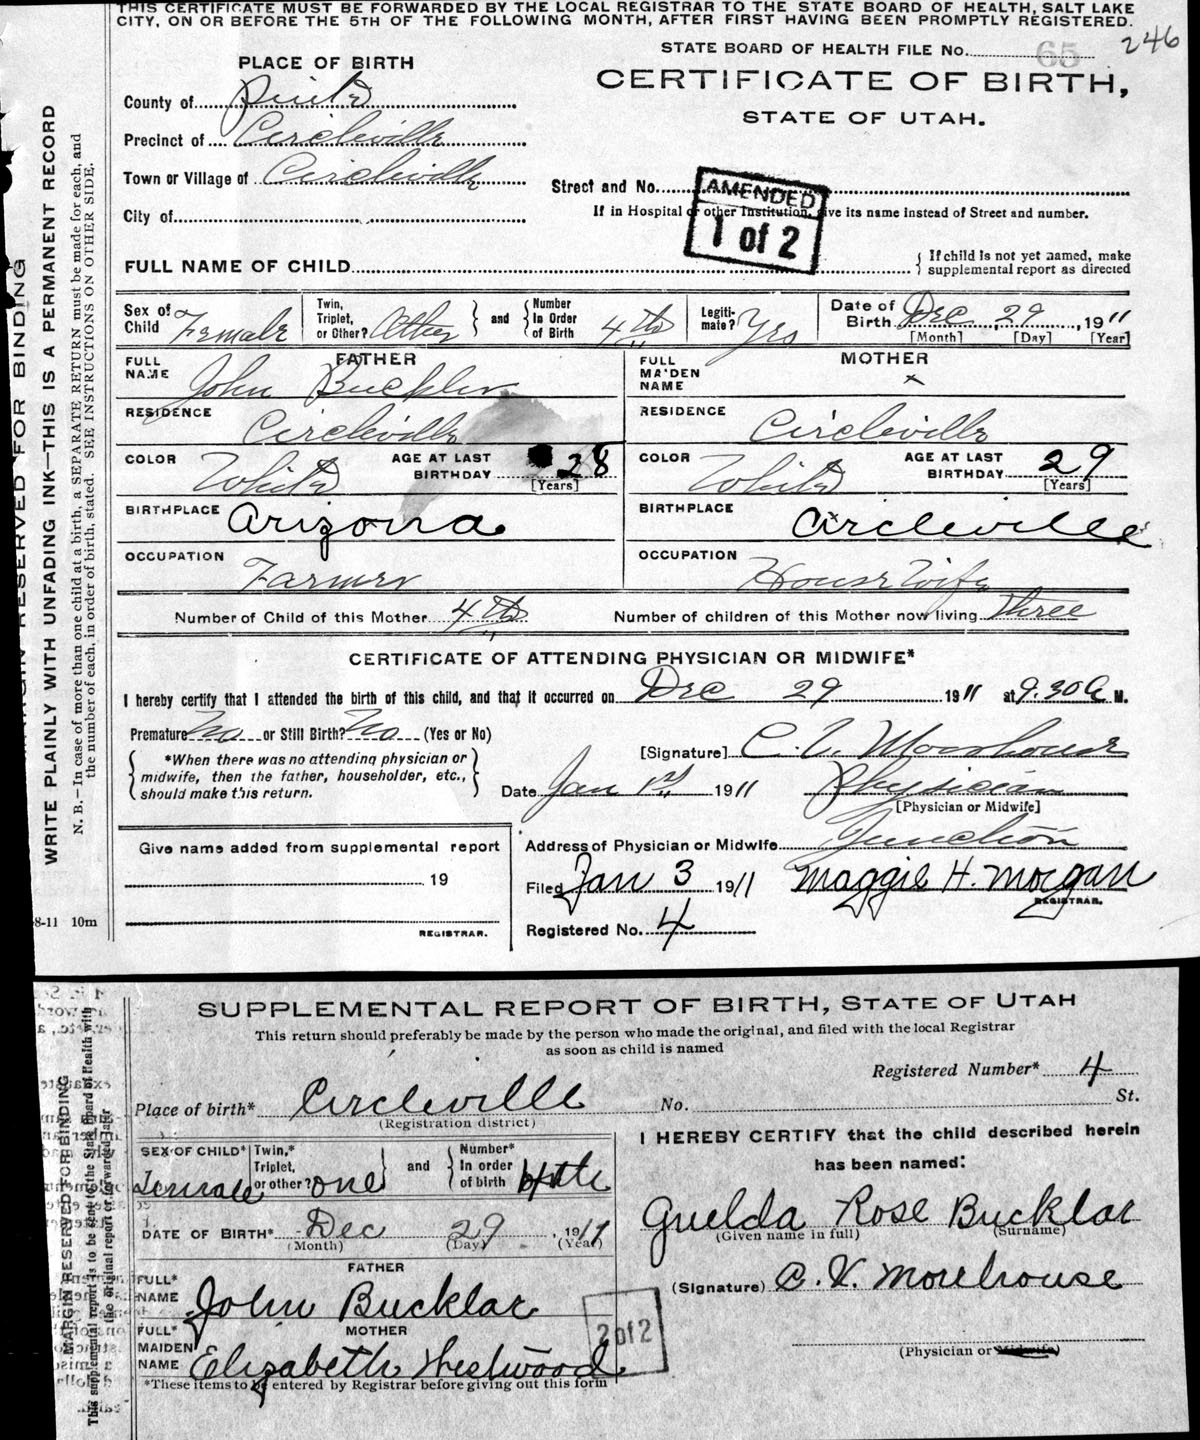 THIS CERTIFICATE MUST BE FORWARDED BY THE LOCAL REGISTRAR TO THE STATE BOARD OF HEALTH, SALT LAKE
CITY, ON OR BEFORE THE 5TH OF THE FOLLOWING MONTH, AFTER FIRST HAVING BEEN PROMPTLY REGISTERED.
STATE BOARD OF HEALTH FILE No. 65 246
PLACE OF BIRTH
CERTIFICATE OF BIRTH,
STATE OF UTAH.
County of Piute
Precinct of Circleville
Town or Village of Circleville
Street and No.
City of
If in Hospital or other Institution, give its name instead of Street and number.
AMENDED
1 of 2
FULL NAME OF CHILD
If child is not yet named, make
supplemental report as directed
Sex of Child Female
Twin, Triplet, or Other? Other and Number In Order of Birth 4th
Legitimate? Yes
Date of Birth Dec 29, 1911
[Month] [Day] [Year]
FATHER
FULL NAME John Buckler
RESIDENCE Circleville
COLOR White
AGE AT LAST BIRTHDAY 28
[Years]
BIRTHPLACE Arizona
OCCUPATION Farmer
MOTHER
FULL MAIDEN NAME x
RESIDENCE Circleville
COLOR White
AGE AT LAST BIRTHDAY 29
[Years]
BIRTHPLACE Circleville
OCCUPATION House Wife
Number of Child of this Mother 4th
Number of children of this Mother now living three
CERTIFICATE OF ATTENDING PHYSICIAN OR MIDWIFE*
I hereby certify that I attended the birth of this child, and that it occurred on Dec 29 1911 at 9.30 A M.
Premature No or Still Birth? No (Yes or No)
*When there was no attending physician or
midwife, then the father, householder, etc.,
should make this return.
[Signature] C. V. Morehouse
Date Jan 1st 1911 Physician
[Physician or Midwife]
Give name added from supplemental report
19
REGISTRAR.
Address of Physician or Midwife Junction
Filed Jan 3 1911 Maggie H. Morgan
REGISTRAR.
Registered No. 4
8-11 10m
MARGIN RESERVED FOR BINDING
WRITE PLAINLY WITH UNFADING INK—THIS IS A PERMANENT RECORD
N. B.—In case of more than one child at a birth, a SEPARATE RETURN must be made for each, and
the number of each, in order of birth, stated. SEE INSTRUCTIONS ON OTHER SIDE.
SUPPLEMENTAL REPORT OF BIRTH, STATE OF UTAH
This return should preferably be made by the person who made the original, and filed with the local Registrar
as soon as child is named
Registered Number* 4
Place of birth* Circleville No. St.
(Registration district)
SEX OF CHILD* Female
Twin,* Triplet, or other? one and Number* In order of birth 4th
DATE OF BIRTH* Dec 29, 1911
(Month) (Day) (Year)
FATHER
FULL* NAME John Bucklar
MOTHER
FULL* MAIDEN NAME Elizabeth Westwood
*These items to be entered by Registrar before giving out this form
I HEREBY CERTIFY that the child described herein
has been named:
Guelda Rose Bucklar
(Given name in full) (Surname)
(Signature) C. V. Morehouse
(Physician or Midwife)
2 of 2
MARGIN RESERVED FOR BINDING
This supplemental report is to be sent to the State Board of Health with
the original report or forwarded later